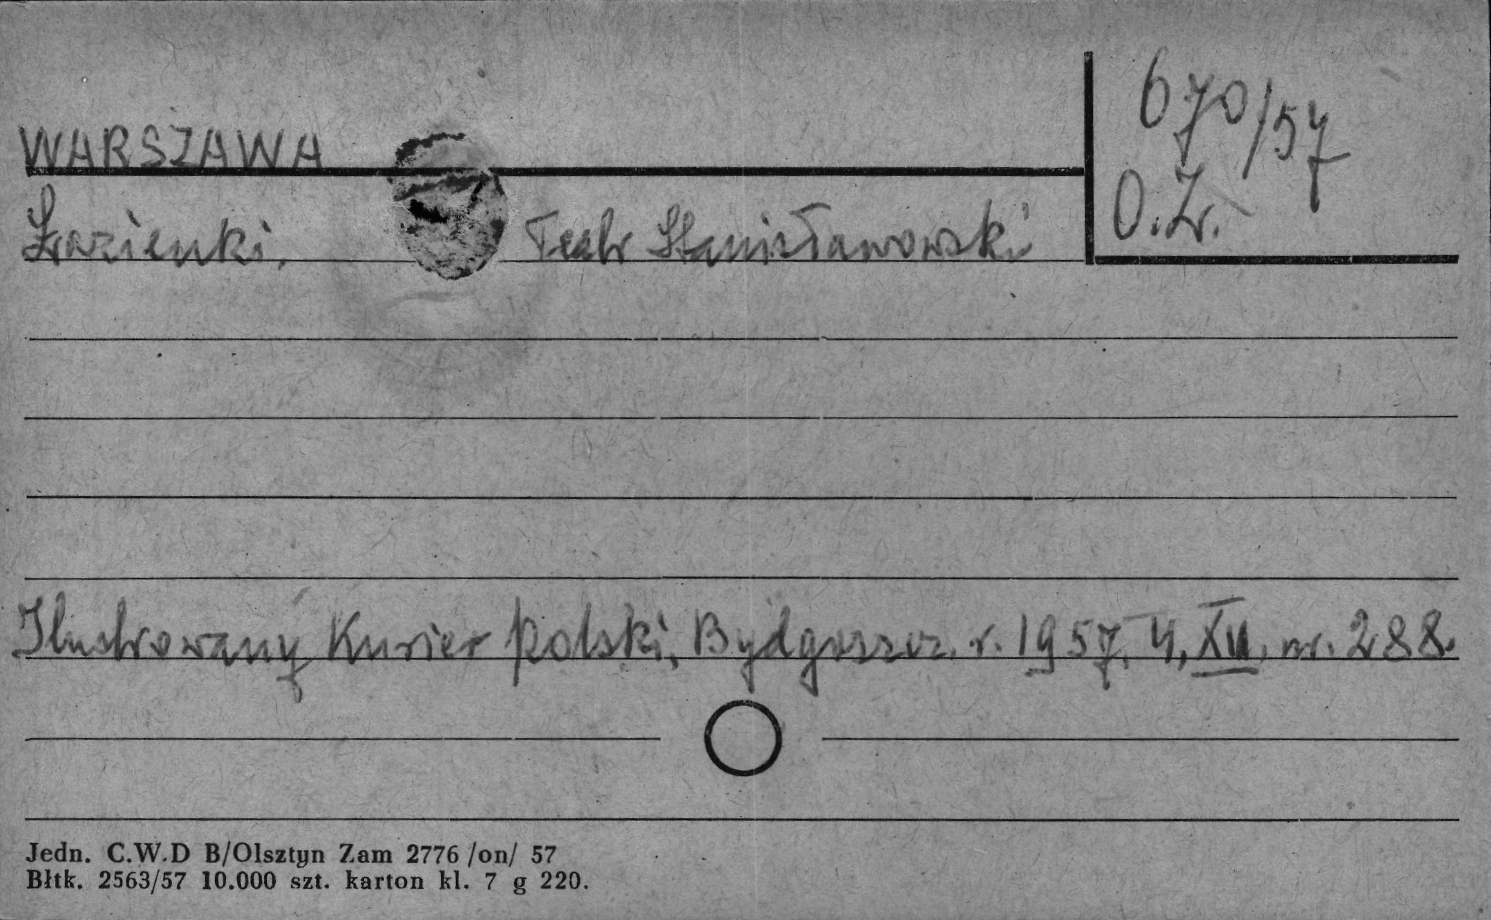 670/57
WARSZAWA
O.Z.
Łazienki. Teatr Stanisławowski
Ilustrowany Kurier Polski, Bydgoszcz. r. 1957. 4. XII. nr. 288.
Jedn. C.W.D B/Olsztyn Zam 2776 /on/ 57
Błtk. 2563/57 10.000 szt. karton kl. 7 g 220.